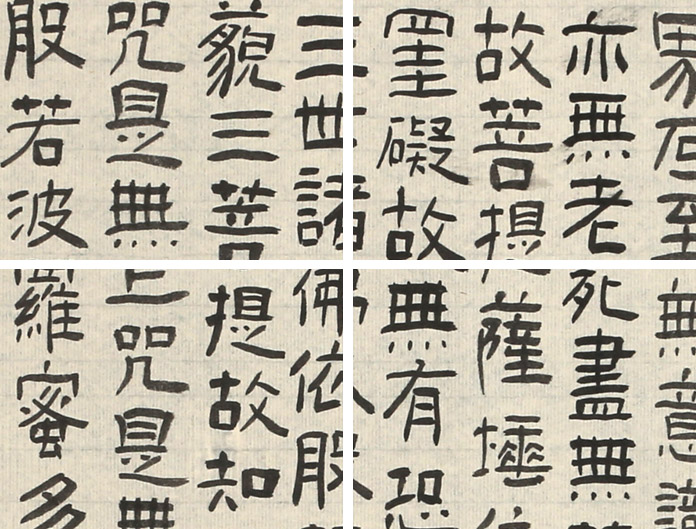 界乃至無意識
亦無老死盡無
故菩提薩埵依
罣礙故無有恐
三世諸佛依般
藐三菩提故知
咒是無上咒是無
般若波羅蜜多